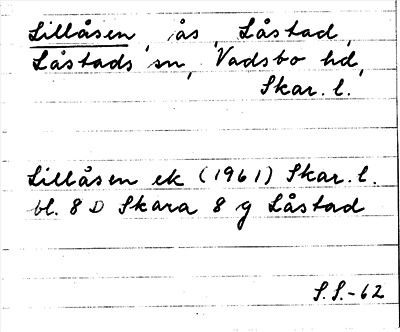 Lillåsen, ås, Låstad,
Låstads sn, Vadsbo hd,
Skar. l.
Lillåsen ek (1961) Skar. l.
bl. 8 D Skara 8 g Låstad
S.S.-62